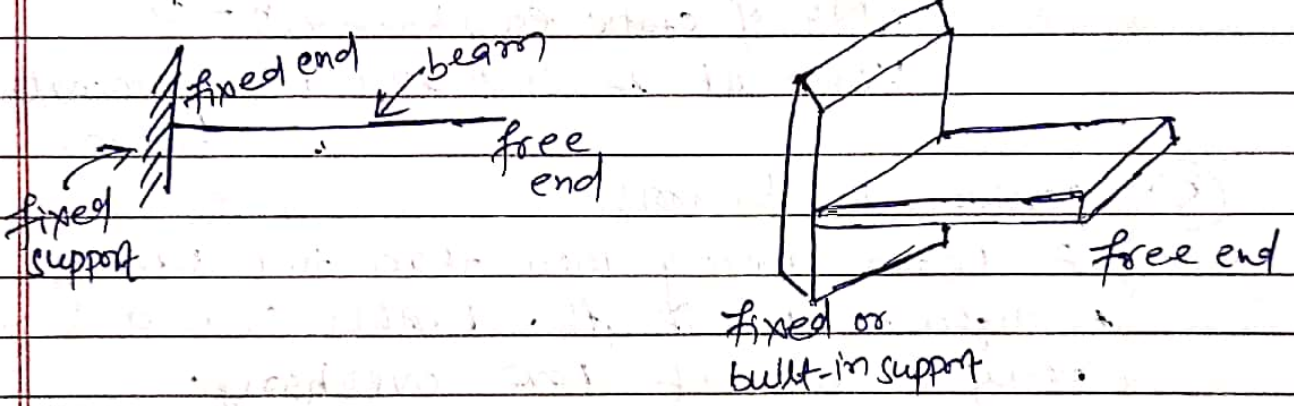 fixed end
beam
free
end
fixed
support
free end
fixed or
built-in support